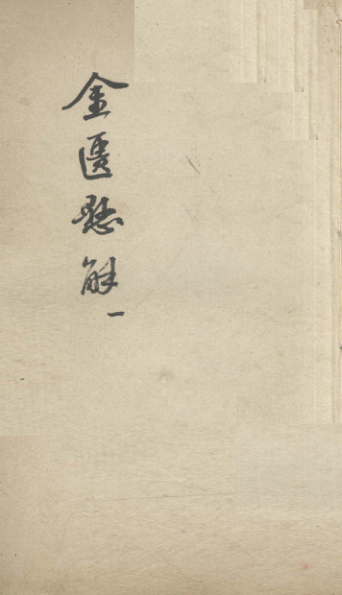 金匱懸解一